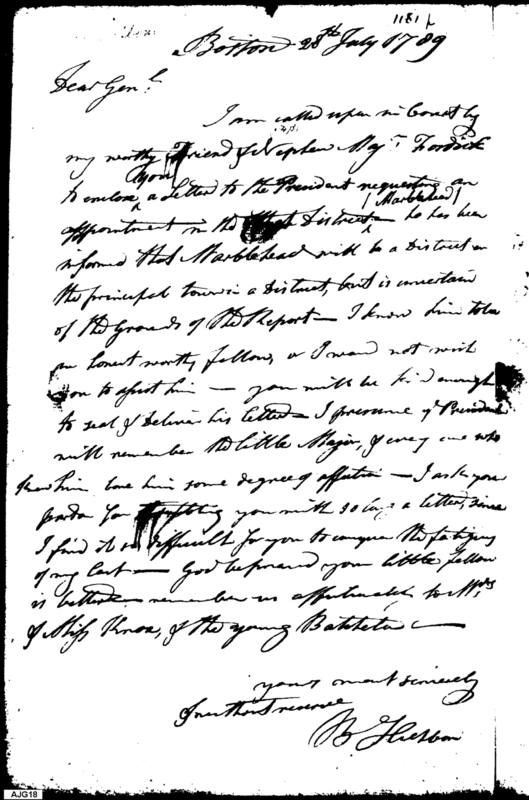 1181
Boston 28th July 1789
Dear Genl.
I am called upon in Court by
my worthy Friend & Nephew Majr
to enclose you a Letter to the President requesting an
appointment in the District (Marblehead) he has been
informed that Marblehead will be a District or
the principal town in a District, but is uncertain
of the Grounds of the Report — I know him to be
an honest worthy fellow, or I would not wish
you to assist him — you will be kind enough
to seal & deliver his letter — I presume ye President
will remember the little Major, & every one who
knew him love him some degree of affection — I ask your
pardon for troubling you with so long a letter, since
I find it so difficult for you to conquer the fatigues
of my last — God be praised your little fellow
is better — remember us affectionately to Mrs
& Miss Knox, & the young Batchelor —
yours most sincerely
& without reserve
B
AJG18